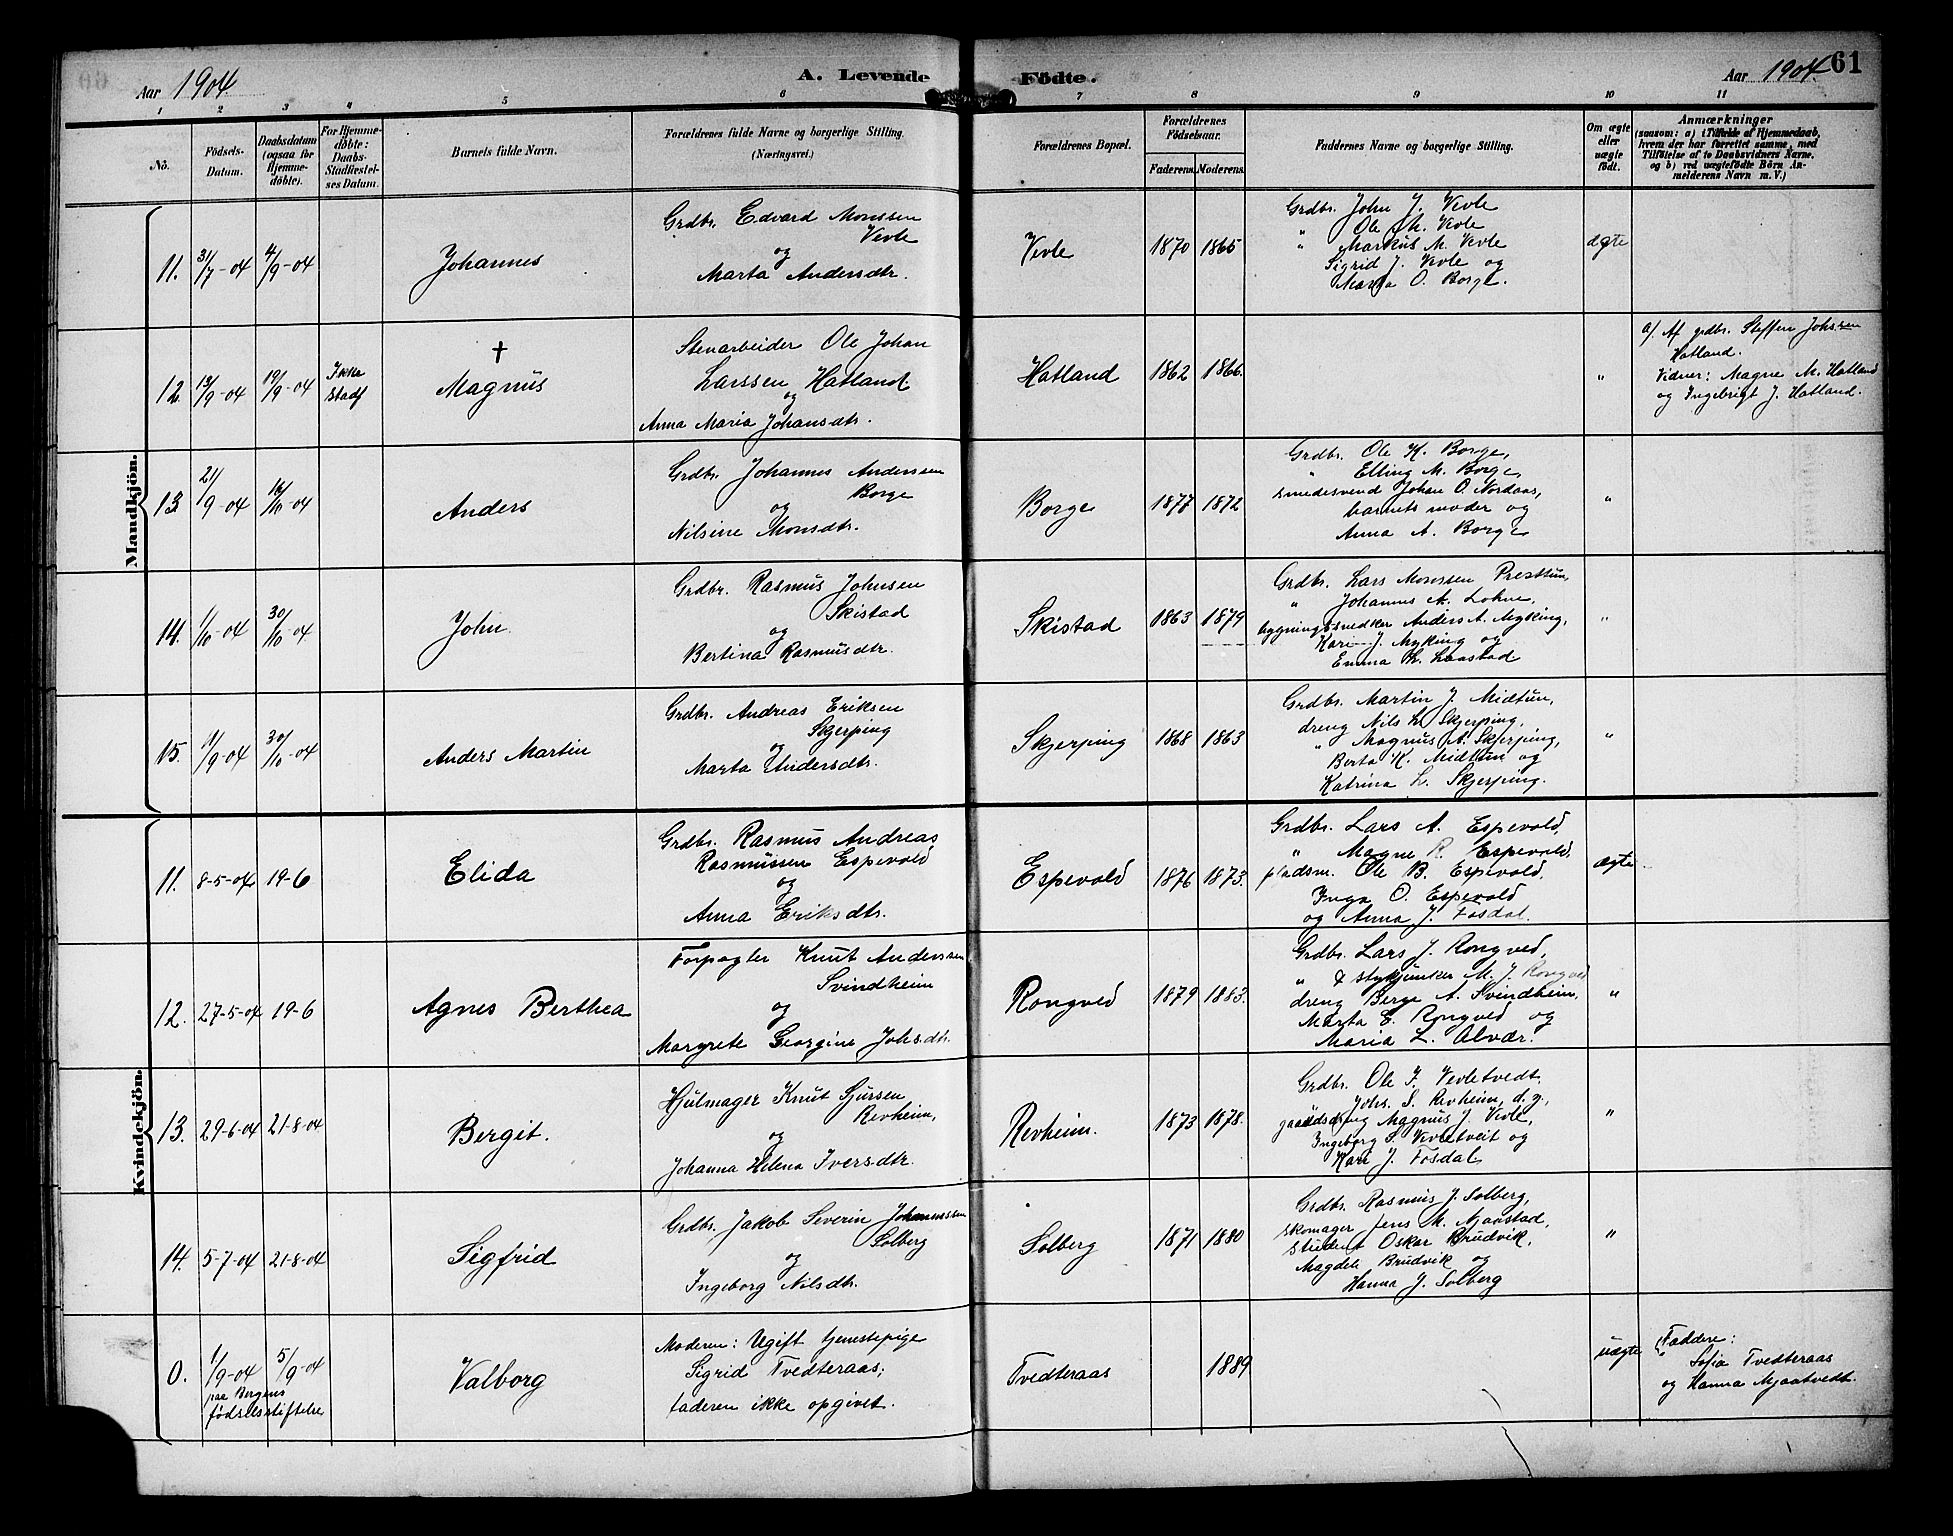 Aar 1904
A. Levende Födte.
Aar 1904. 61
1 2 3 4 5 6 7 8 9 10 11
No.
Födsels-Datum.
Daabsdatum (ogsaa for Hjemme-döbte).
For Hjemme-döbte: Daabs-Stadfæstel-ses Datum.
Barnets fulde Navn.
Forældrenes fulde Navne og borgerlige Stilling. (Næringsvei.)
Forældrenes Bopæl.
Forældrenes Födselsaar.
Faderens. Moderens.
Faddernes Navne og borgerlige Stilling.
Om ægte eller uægte födt.
Anmærkninger
(saasom: a) i Tilfælde af Hjemmedaab, hvem der har forrettet samme, med Tilföielse af to Daabsvidners Navne, og b) ved uægtefödte Börn Anmelderens Navn m. V.)
Mandkjön.
11. 31/7-04 4/9-04
Johannes
Grdbr. Edvard Monssen
Vevle
og
Marta Andersdtr.
Vevle 1870 1865
Grdbr. John J. Vevle
" Ole M. Vevle
" Markus M. Vevle
Sigrid J. Vevle og
Marta O. Borge.
ægte
12. 13/9-04 19/9-04 Ikke stadf
†
Magnus
Stenarbeider Ole Johan
Larssen Hatland
og
Anna Maria Johansdtr.
Hatland 1862 1866.
"
a/. Af grdbr. Steffen Johssen
Hatland.
Vidner: Magne M. Hatland
og Ingebrigt J. Hatland.
13. 21/9-04 16/10-04
Anders
Grdbr. Johannes Anderssen
Borge
og
Nilsine Monsdtr.
Borge 1877 1872
Grdbr. Ole K. Borge,
" Elling M. Borge,
smedesvend Johan O. Nordaas,
barnets moder og
Anna A. Borge
"
14. 1/10-04 30/10-04
John.
Grdbr. Rasmus Johnsen
Skistad
og
Bertina Rasmusdtr.
Skistad 1863 1879
Grdbr. Lars Monssen Presttun,
" Johannes A. Lohne,
bygningssnedker Anders A. Myking,
Kari J. Myking og
Emma L. Laastad
"
15. 11/9-04 30/10-04
Anders Martin
Grdbr. Andreas Eriksen
Skjerping
og
Marta Andersdtr.
Skjerping 1868 1863
Grdbr. Martin J. Midtun,
dreng Nils L. Skjerping,
" Magnus A. Skjerping,
Berta K. Midtun og
Katrina L. Skjerping.
"
Kvindekjön.
11. 8-5-04 19-6
Elida
Grdbr. Rasmus Andreas
Rasmussen Espevold
og
Anna Eriksdtr.
Espevold 1876 1873.
Grdbr. Lars A. Espevold,
" Magne R. Espevold,
pladsm. Ole B. Espevold,
Inga O. Espevold
og Anna J. Fosdal.
ægte
12. 27-5-04 19-6
Agnes Berthea
Forpagter Knut Anderssen
Svindheim
og
Margrete Georgine Johsdtr.
Rongved 1879 1883.
Grdbr. Lars J. Rongved,
" & stykjunker M. J. Rongved
dreng Berge A. Svindheim,
Marta E. Rongved og
Maria L. Alvær.
"
13. 29-6-04 21-8-04
Bergit.
Hjulmager Knut Sjursen
Revheim,
og
Johanna Helena Iversdtr.
Revheim. 1873 1878.
Grdbr. Ole I. Vevletvedt,
Johs. S. Revheim, d. y.,
gaardsdreng Magnus J. Vevle,
Ingeborg S. Vevletveit og
Kari J. Fosdal.
"
14. 5-7-04 21-8-04
Sigfrid
Grdbr. Jakob Severin Johannessen
Solberg
og
Ingeborg Nilsdtr.
Solberg 1871 1880
Grdbr. Rasmus J. Solberg,
skomager Jens M. Mjaastad,
student Oskar Brudvik,
Magdele Brudvik og
Hanna J. Solberg
"
0. 1/9-04 5/9-04
paa Bergens
födselsstiftelse
Valborg
Moderen: Ugift tjenestepige
Sigrid Tvedteraas;
faderen ikke opgivet.
Tvedteraas 1889
uægte
Faddere:
" Sofia Tvedteraas
og Hanna Mjaatvedt.